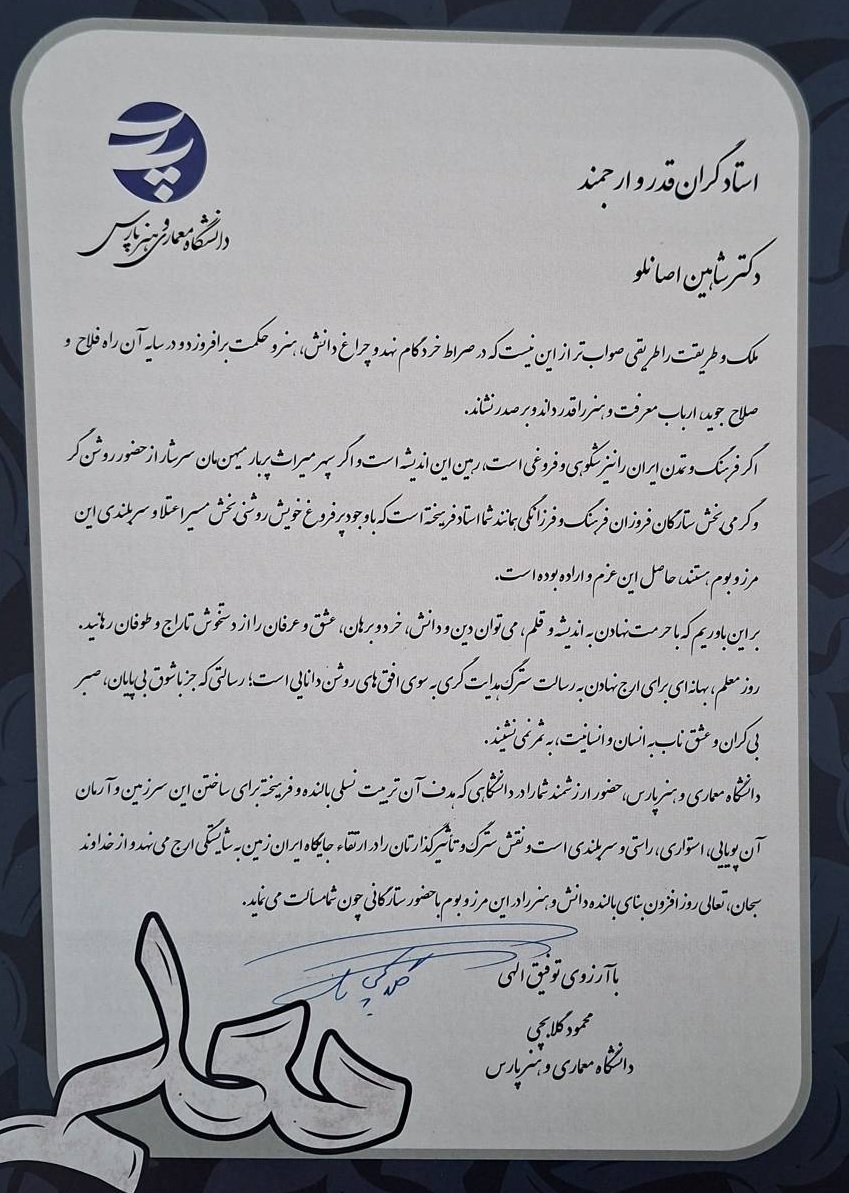 دانشگاه معماری و هنر پارس
استاد گران قدر و ارجمند
دکتر شاهین اصانلو
ملک و طریقت را طریقی صواب تر از این نیست که در صراط خرد گام نهد و چراغ دانش، هنر و حکمت برافروزد و در سایه آن راه فلاح و
صلاح جوید، ارباب معرفت و هنر را قدر داند و بر صدر نشاند.
اگر فرهنگ و تمدن ایران را نیز شکوهی و فروغی است، رهین این اندیشه است و اگر سپهر میراث پربار میهن مان سرشار از حضور روشن گر
و گرمی بخش ستارگان فروزان فرهنگ و فرزانگی همانند شما استاد فرهیخته است که با وجود پر فروغ خویش روشنی بخش مسیر اعتلا و سربلندی این
مرز و بوم هستند، حاصل این عزم و اراده بوده است.
بر این باوریم که با حرمت نهادن به اندیشه و قلم، می توان دین و دانش، خرد و برهان، عشق و عرفان را از دستخوش تاراج و طوفان رهانید.
روز معلم، بهانه ای برای ارج نهادن به رسالت سترگ هدایت گری به سوی افق های روشن دانایی است؛ رسالتی که جز با شوق بی پایان، صبر
بی کران و عشق ناب به انسان و انسانیت، به ثمر نمی نشیند.
دانشگاه معماری و هنر پارس، حضور ارزشمند شما را در دانشگاهی که هدف آن تربیت نسلی بالنده و فرهیخته برای ساختن این سرزمین و آرمان
آن پویایی، استواری، راستی و سربلندی است و نقش سترگ و تأثیرگذارتان را در ارتقاء جایگاه ایران زمین به شایستگی ارج می نهد و از خداوند
سبحان، تعالی روز افزون بنای بالنده دانش و هنر را در این مرز و بوم با حضور ستارگانی چون شما مسألت می نماید.
با آرزوی توفیق الهی
محمود گلابچی
دانشگاه معماری و هنر پارس